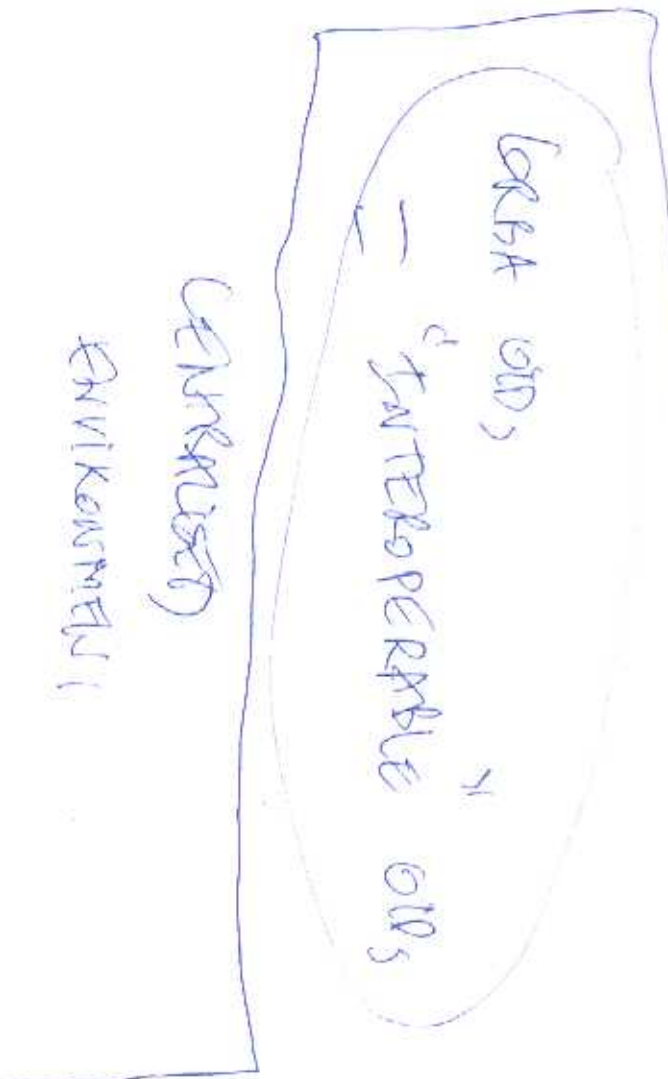 CORBA OIDs
— "INTEROPERABLE" OIDs
CENTRALISED
ENVIRONMENT